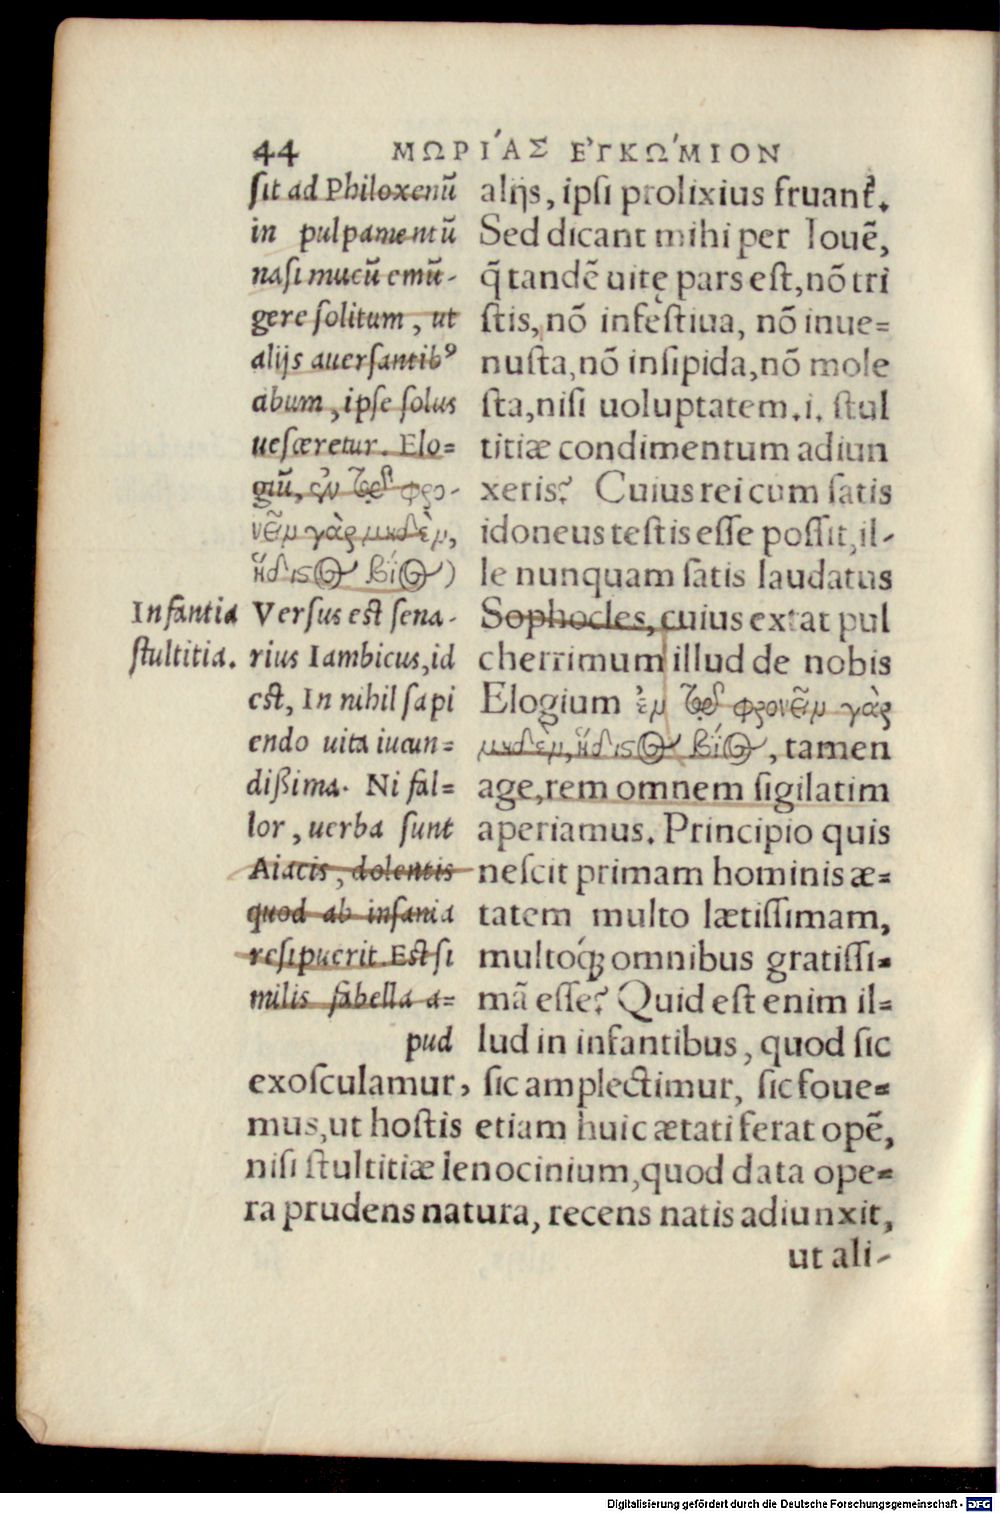 44 ΜΩΡΊΑΣ ἘΓΚΏΜΙΟΝ
sit ad Philoxenū
in pulpamentū
nasi mucū emū-
gere solitum, ut
alijs auersantibꝰ
abum, ipse solus
uesceretur. Elo=
giū, ἐν τῷ φρο-
νεῖν γὰρ μηδὲν,
ἥδιστος βίος)
Versus est sena-
rius Iambicus, id
est, In nihil sapi
endo uita iucun=
dißima. Ni fal=
lor, uerba sunt
Aiacis, dolentis
quod ab insania
resipuerit. Est si
milis fabella a=
pud
Infantia
stultitia.
alijs, ipsi prolixius fruant᷑.
Sed dicant mihi per Iouē,
q̄ tandē uitę pars est, nō tri
stis, nō infestiua, nō inue=
nusta, nō insipida, nō mole
sta, nisi uoluptatem .i. stul
titiæ condimentum adiun
xeris? Cuius rei cum satis
idoneus testis esse possit, il-
le nunquam satis laudatus
Sophocles, cuius extat pul
cherrimum illud de nobis
Elogium ἐν τῷ φρονεῖν γὰρ
μηδὲν, ἥδιστος βίος, tamen
age, rem omnem sigilatim
aperiamus. Principio quis
nescit primam hominis æ=
tatem multo lætissimam,
multoq́ꝫ omnibus gratissi=
mā esse? Quid est enim il=
lud in infantibus, quod sic
exosculamur, sic amplectimur, sic foue=
mus, ut hostis etiam huic ætati ferat opē,
nisi stultitiæ lenocinium, quod data ope=
ra prudens natura, recens natis adiunxit,
ut ali-
Digitalisierung gefördert durch die Deutsche Forschungsgemeinschaft - DFG